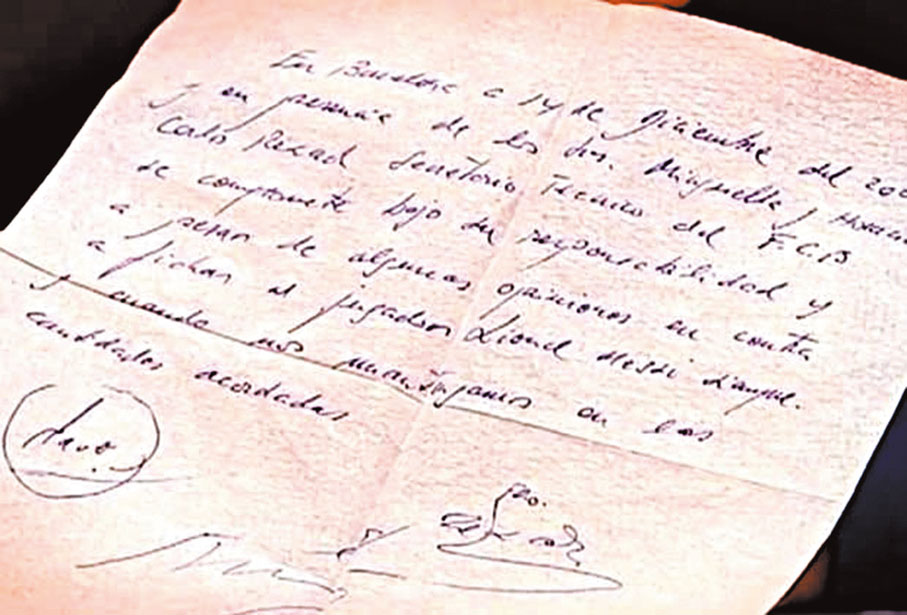 En Barcelona a 14 de Diciembre del 200
y en presencia de los Srs. Minguella y Horacio
Carlos Rexach Secretario Técnico del F.C.B
se compromete bajo su responsabilidad y
a pesar de algunas opiniones en contra
a fichar al jugador Lionel Messi siempre
y cuando nos mantengamos en las
cantidades acordadas